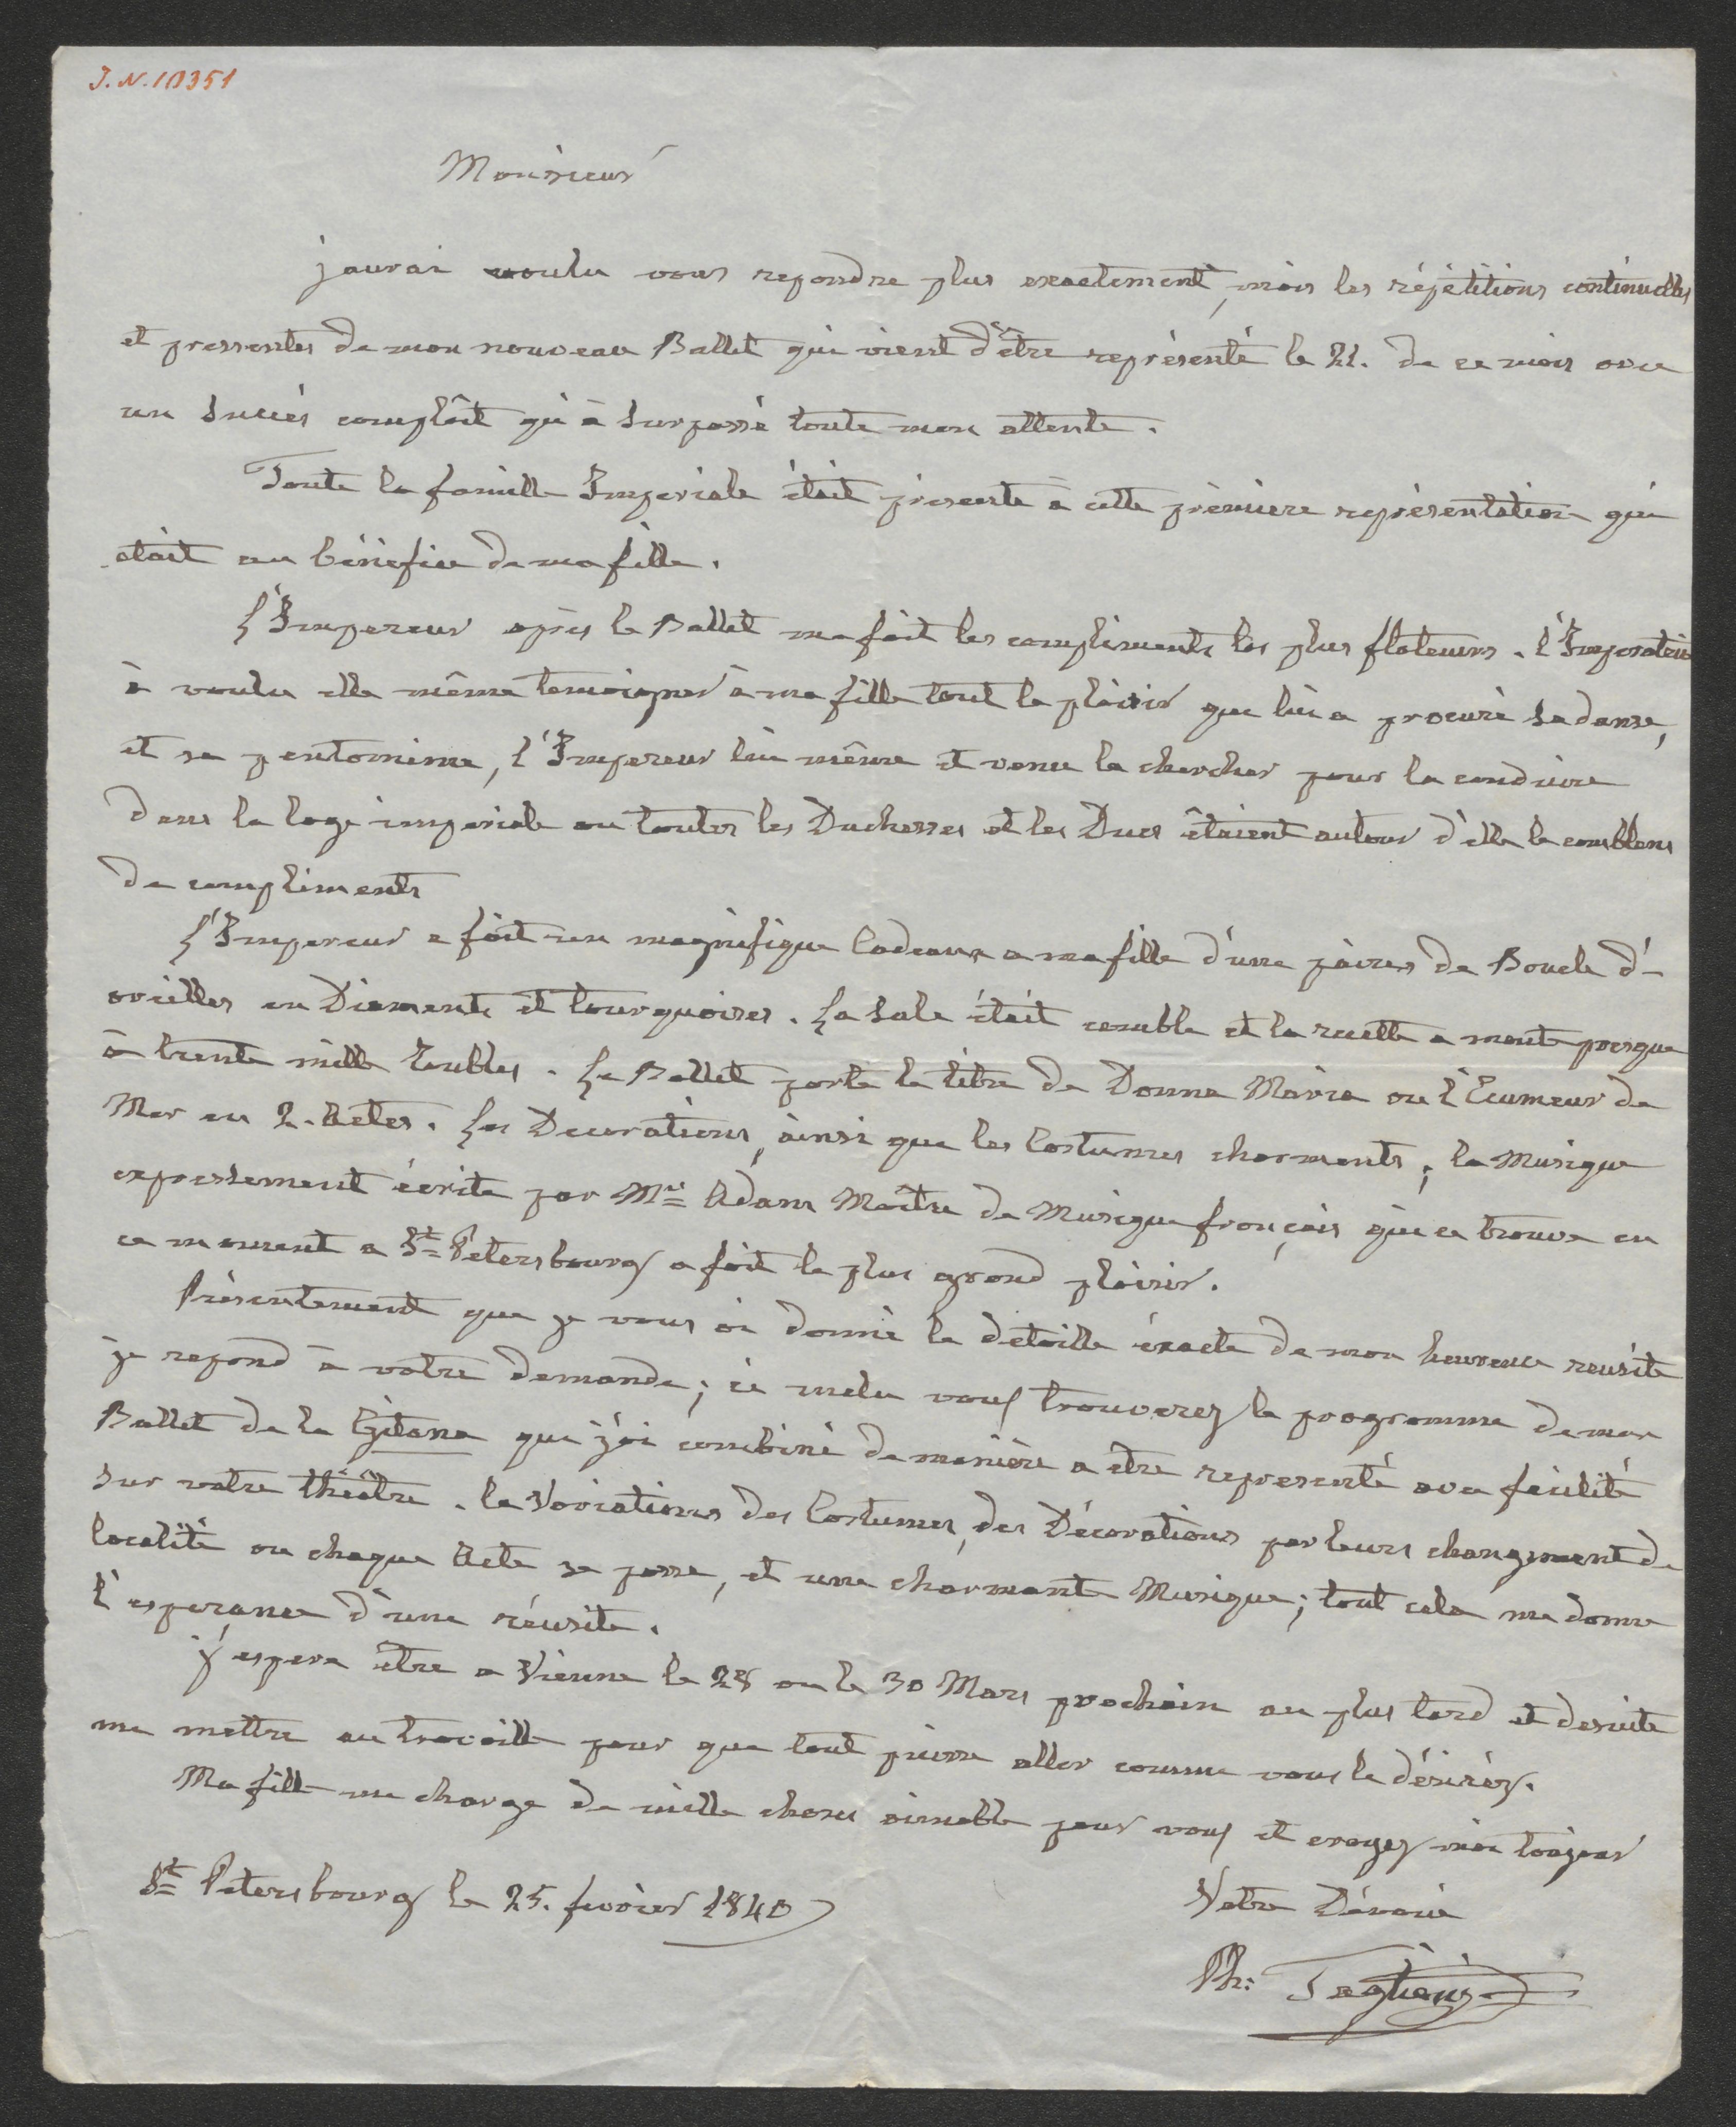 J.N. 10351
Monsieur
jaurai voulu vous repondre plus exactement, mais les répétitions continuelles
et pressentes de mon nouveau Ballet qui vient d'être représenté le 21. de ce mois avec
un Succés complêt qui à Surpassé toute mon attente.
Toute la famille Imperiale était presente à cette prèmiere représentation qui
etait au bénéfice de ma fille.
L'Impereur après le Ballet ma fait les compliments les plus flateurs. l'Imperatrice
à voulu elle même temoigner à ma fille tout le plaisir que lui a procuré Sa danse,
et sa pentomime, l'Impereur lui même et venu la chercher pour la conduire
dans la loge imperiale ou toutes les Duchesses et les Ducs êtaient autour d'elle la comblans
de compliments
L'Impereur a fait un magnifique Cadeaux a ma fille d'une paires de Boucle d'-
oreilles en Diamants et tourquoises. La Sale était comble et la recette a monté presque
à trente mille Roubles. Le Ballet porte le titre de Donna Maria ou l'Ecumeur de
Mer en 2. Actes. Les Decorations, ainsi que les Costumes charmants, la Musique
expressement écrite par Mr. Adam Maître de Musique français qui ce trouve en
ce moment a St. Petersbourg a fait le plus grand plaisir.
Présentement que je vous ai donné le detaille éxacte de mon heureuse reusite
je repond à votre demande; ci inclu vous trouverez le programme de mon
Ballet de la Gitana que j'ai combiné de manière a etre representé avec facilité
Sur votre théâtre. la Variations des Costumes, des Décorations par leurs changement de
localité ou chaque Acte se passe, et une charmante Musique; tout cela me donne
l'esperance d'une réusite.
j'espere être a Vienne le 28 ou le 30 Mars prochain au plus tard et desuite
me mettre au travaille pour que tout puisse aller comme vous le désirez.
Ma fille me charge de mille choses aimable pour vous et croyez moi toujour
St. Petersbourg le 25. fevrier 1840
Votre Dévoué
Ph: Taglioni